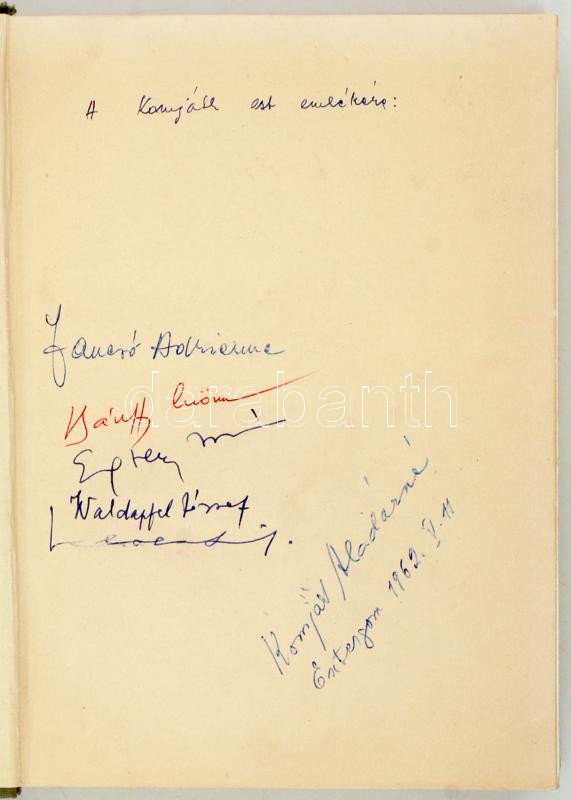 A Komját est emlékére:
Jancsó Adrienne
Bánffy
darabanth
Waldapfel József
Komját Aladárné
Esztergom 1962. V. 11